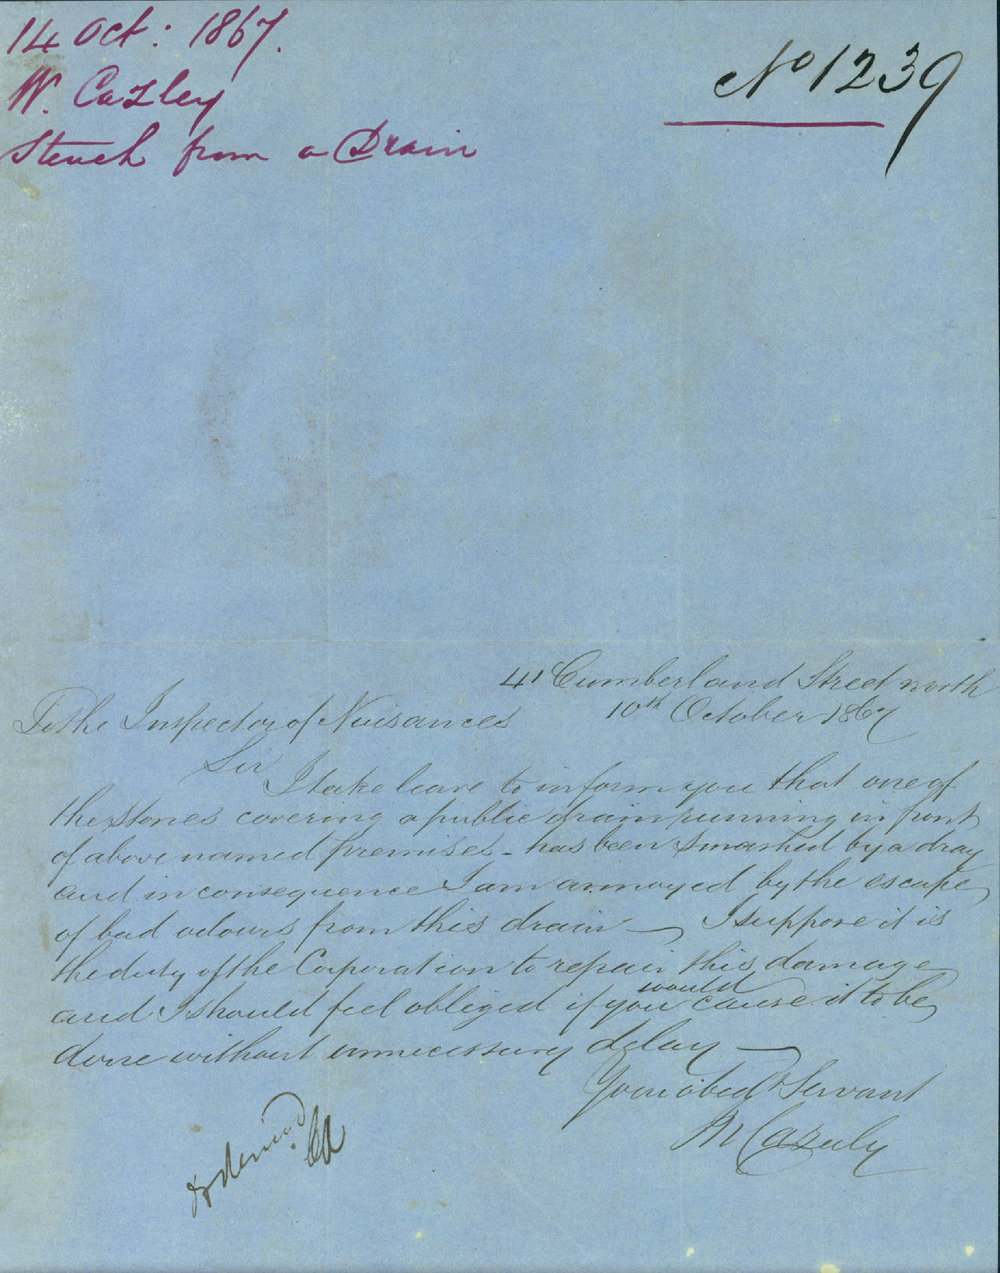 14 Oct: 1867.
W. Cazley
Stench from a Drain
No 1239
41 Cumberland Street north
10th October 1867
To the Inspector of Nuisances
Sir
I take leave to inform you that one of
the stones covering a public drain running in front
of above named premises - has been smashed by a dray
and in consequence I am annoyed by the escape
of bad odours from this drain — I suppose it is
the duty of the Corporation to repair this damage
and I should feel obliged if you would cause it to be
done without unnecessary delay —
Your obedt Servant